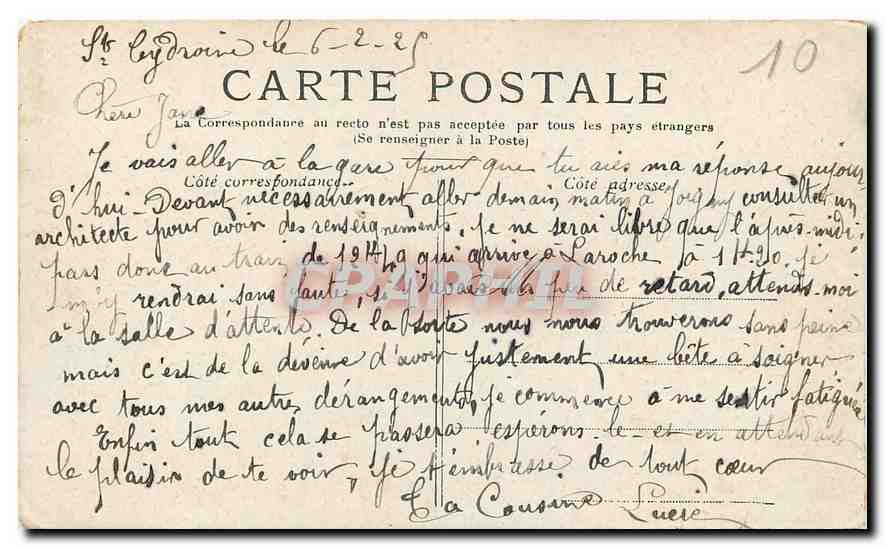 St Cydroine le 6-2-25
10
CARTE POSTALE
Chère Jane
La Correspondance au recto n'est pas acceptée par tous les pays étrangers
(Se renseigner à la Poste)
Je vais aller à la gare pour que tu aies ma réponse aujour
Côté correspondance
Côté adresse
d'hui - Devant nécessairement aller demain matin à Joigny consulter un
architecte pour avoir des renseignements, je ne serai libre que l'après-midi.
pars donc au train de 12H49 qui arrive à Laroche à 1H20. je
m'y rendrai sans faute, si j'avais un peu de retard, attends-moi
à la salle d'attente. De la sorte nous nous trouverons sans peine
mais c'est de la déveine d'avoir justement une bête à soigner
avec tous mes autres dérangements, je commence à me sentir fatiguée
Enfin tout cela se passera espérons-le - et en attendant
le plaisir de te voir, je t'embrasse de tout cœur
Ta Cousine Lucie
CPAPHIL